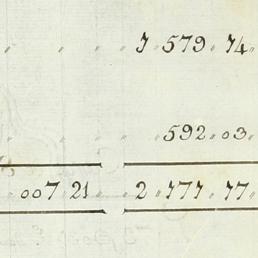 7 579 74
592 03
007 21 2 777 77